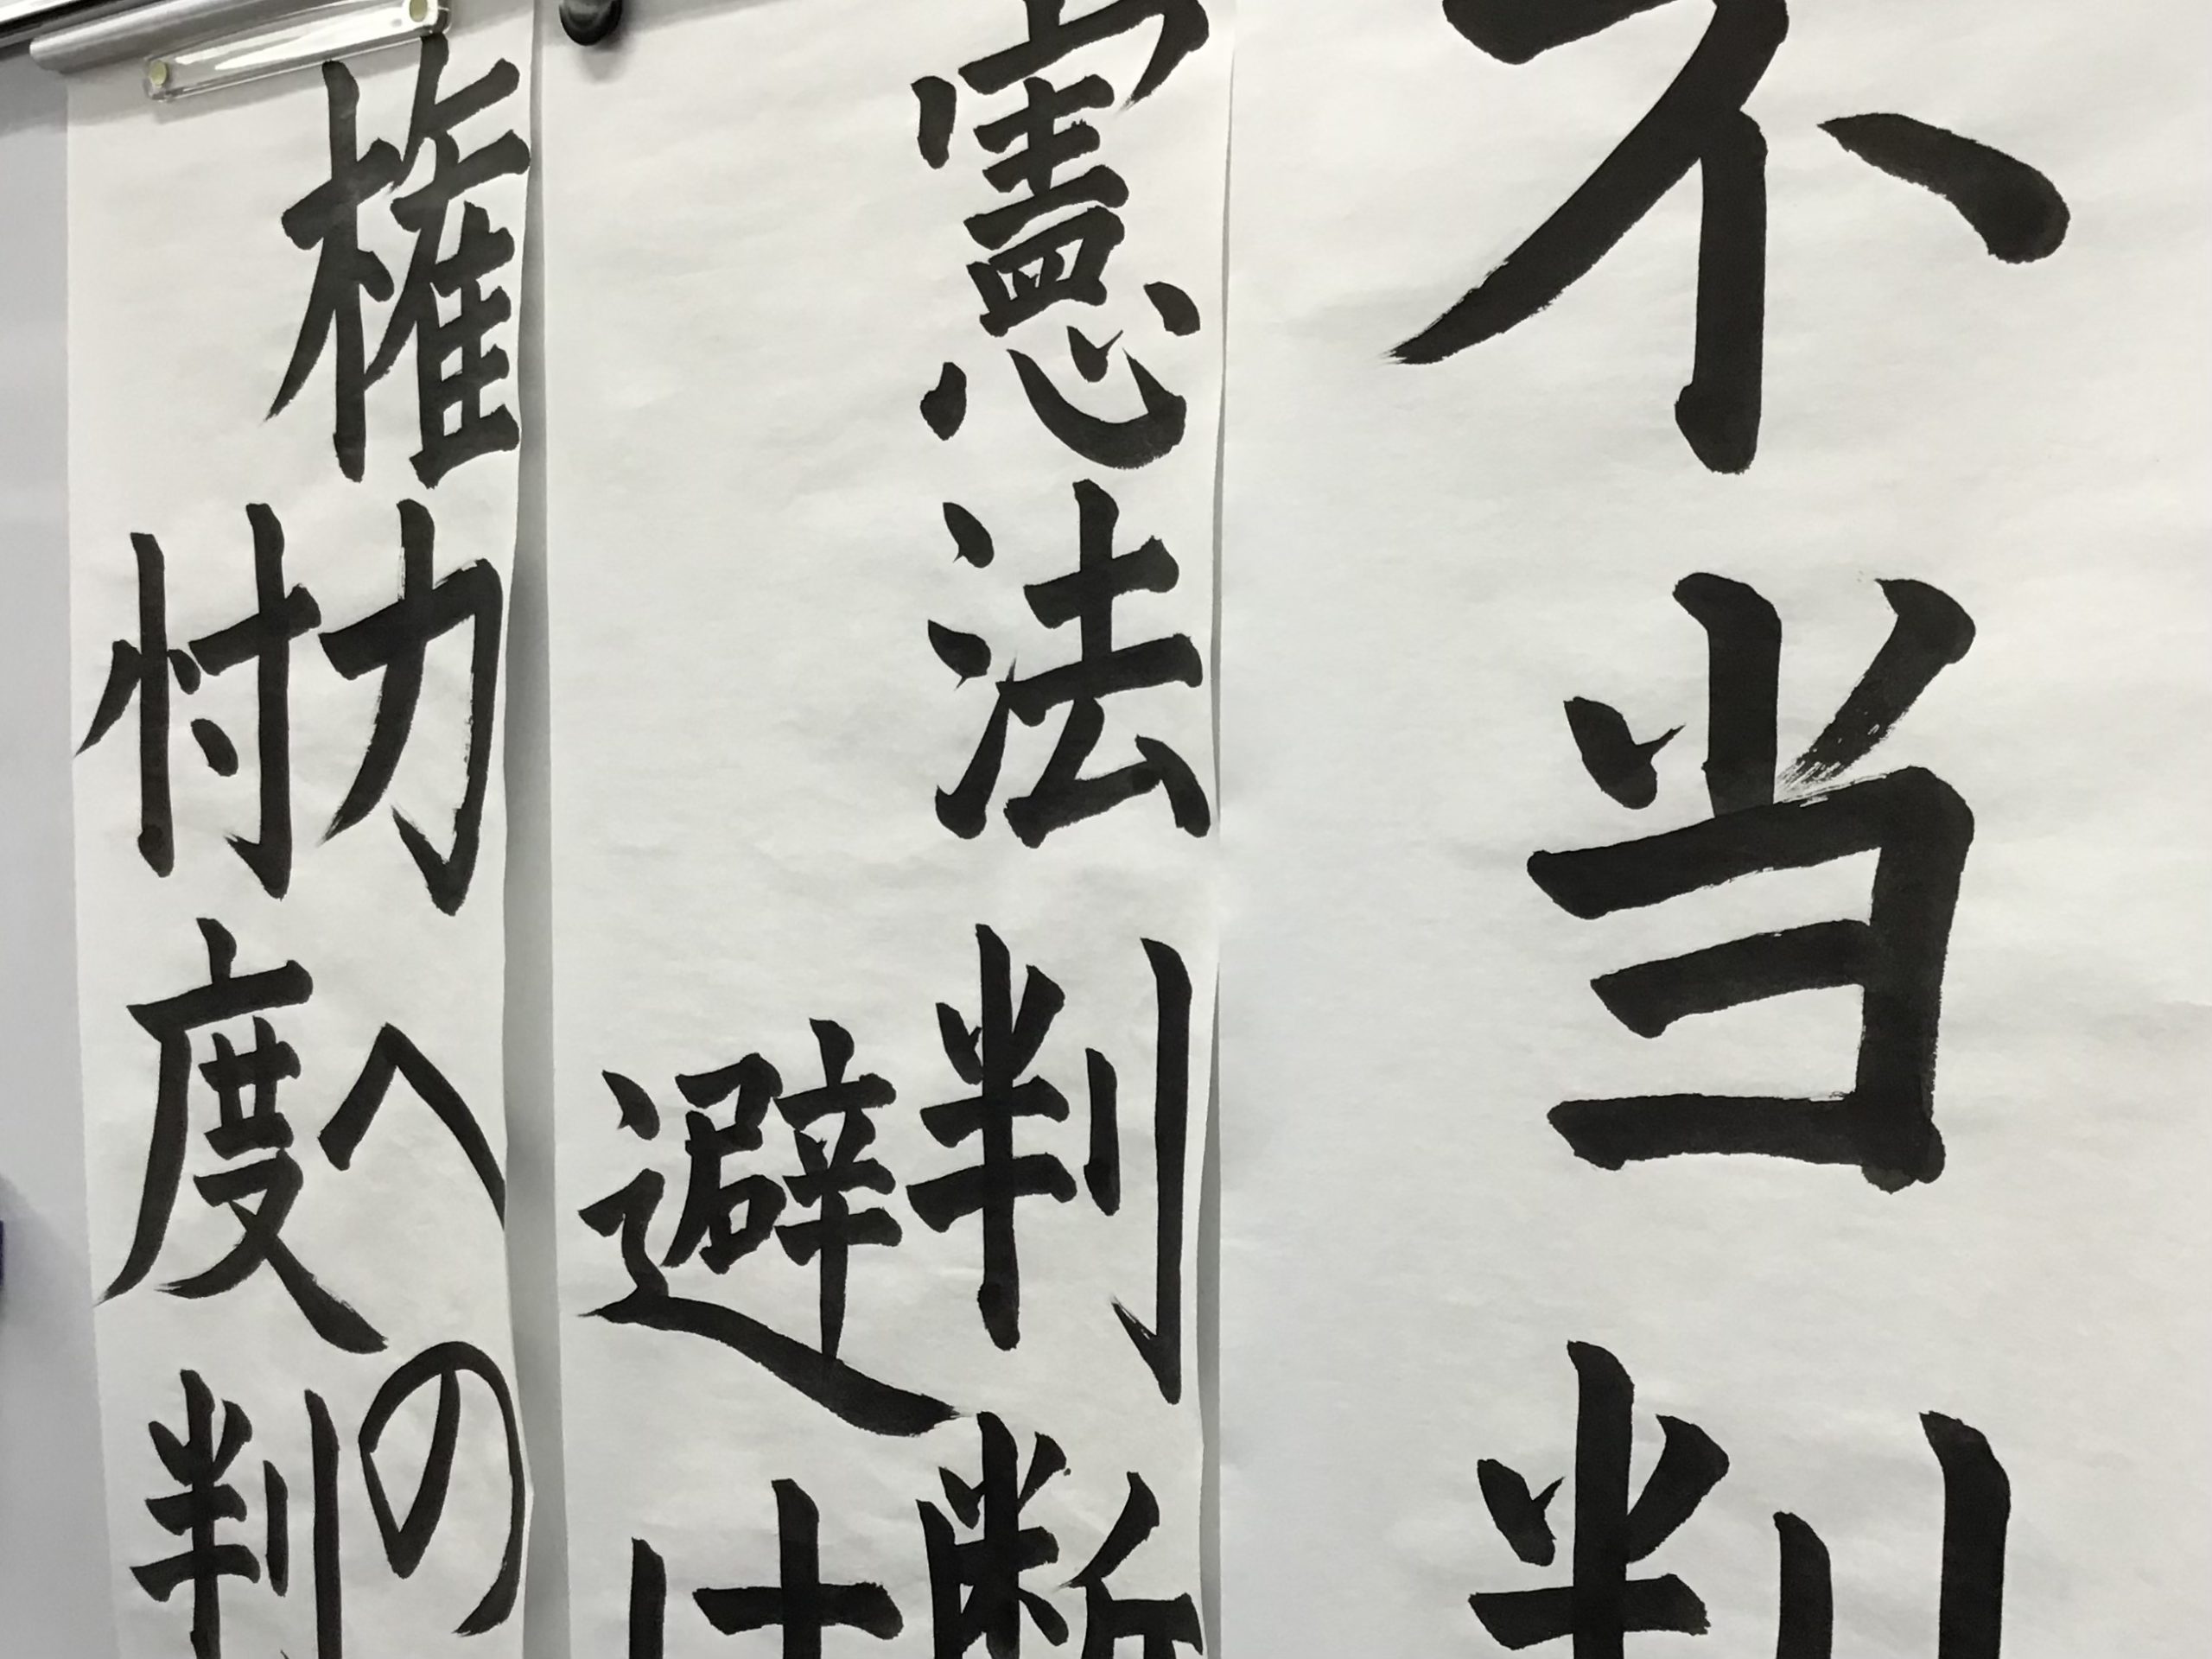 不当判
憲法判断
避け
権力への
忖度判